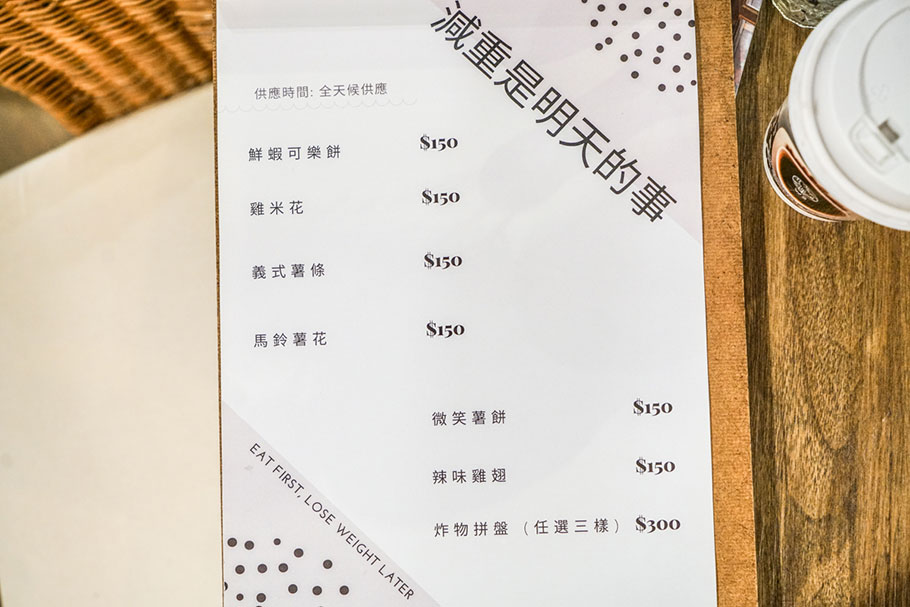 減重是明天的事
供應時間: 全天候供應
鮮蝦可樂餅 $150
雞米花 $150
義式薯條 $150
馬鈴薯花 $150
微笑薯餅 $150
辣味雞翅 $150
炸物拼盤（任選三樣） $300
EAT FIRST, LOSE WEIGHT LATER